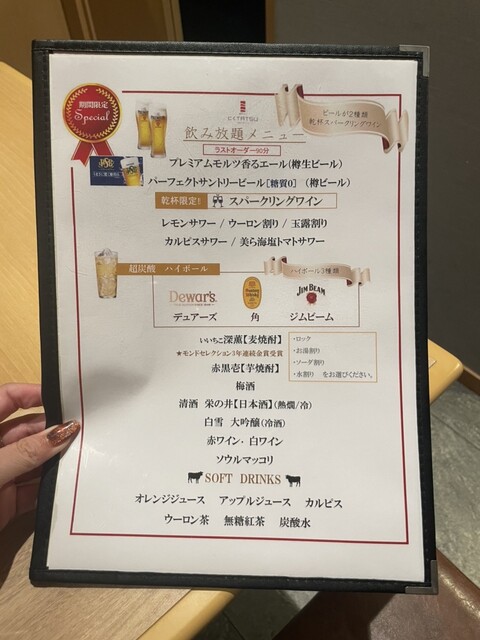 期間限定
Special
ビールが2種類
乾杯スパークリングワイン
飲み放題メニュー
ラストオーダー90分
プレミアムモルツ香るエール(樽生ビール)
パーフェクトサントリービール[糖質0](樽ビール)
乾杯限定!! スパークリングワイン
レモンサワー / ウーロン割り / 玉露割り
カルピスサワー / 美ら海塩トマトサワー
超炭酸 ハイボール
ハイボール3種類
Dewar's. JIM BEAM
デュアーズ 角 ジムビーム
いいちこ深薫【麦焼酎】
★モンドセレクション3年連続金賞受賞
赤黒壱【芋焼酎】
・ロック
・お湯割り
・ソーダ割り
・水割り をお選びください。
梅酒
清酒 栄の井【日本酒】(熱燗/冷)
白雪 大吟醸(冷酒)
赤ワイン・白ワイン
ソウルマッコリ
SOFT DRINKS
オレンジジュース アップルジュース カルピス
ウーロン茶 無糖紅茶 炭酸水